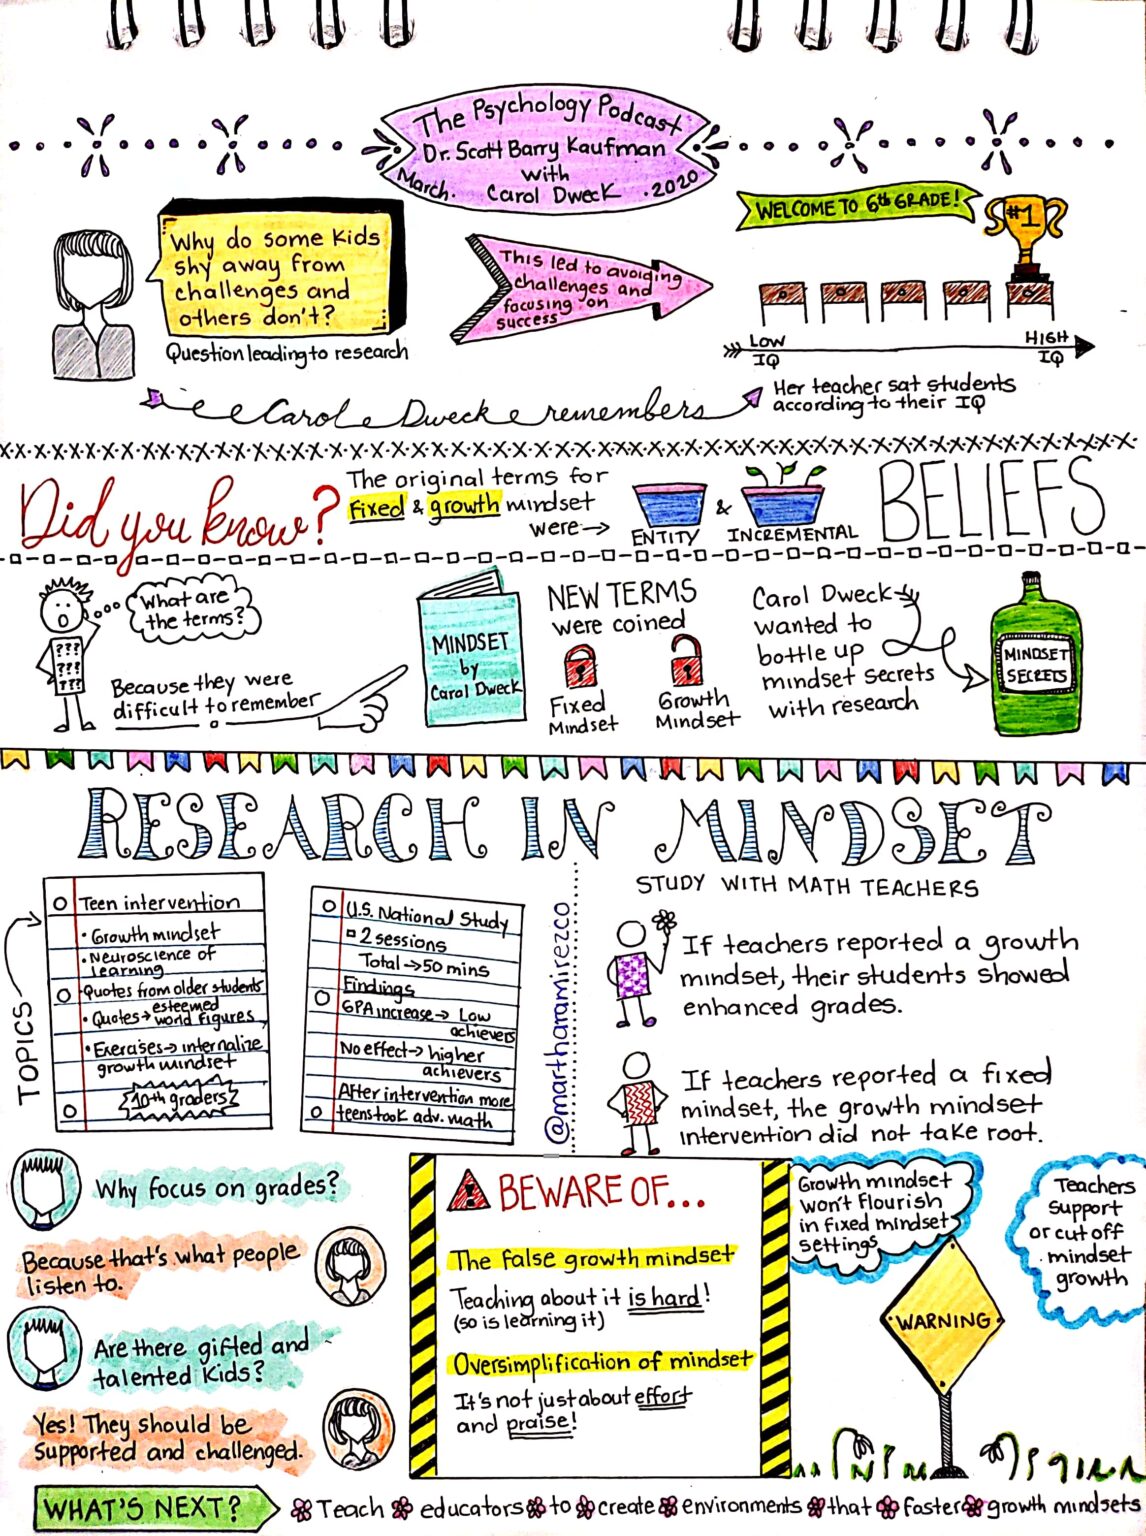 The Psychology Podcast
Dr. Scott Barry Kaufman
with
March. Carol Dweck .2020
Why do some kids
shy away from
challenges and
others don't?
Question leading to research
This led to avoiding
challenges and
focusing on
success
WELCOME TO 6th GRADE!
#1
LOW
IQ
HIGH
IQ
Her teacher sat students
according to their IQ
Carol Dweck remembers
Did you know?
The original terms for
fixed & growth mindset
were →
ENTITY
&
INCREMENTAL
BELIEFS
What are
the terms?
???
???
???
Because they were
difficult to remember
MINDSET
by
Carol Dweck
NEW TERMS
were coined
Fixed
Mindset
Growth
Mindset
Carol Dweck
wanted to
bottle up
mindset secrets
with research
MINDSET
SECRETS
RESEARCH IN MINDSET
TOPICS
Teen intervention
• Growth mindset
• Neuroscience of
learning
• Quotes from older students
• Quotes → esteemed
world figures
• Exercises → internalize
growth mindset
10th graders
U.S. National Study
2 sessions
Total → 50 mins
Findings
GPA increase → Low
achievers
No effect → higher
achievers
After intervention more
teens took adv. math
@martharamirezco
STUDY WITH MATH TEACHERS
If teachers reported a growth
mindset, their students showed
enhanced grades.
If teachers reported a fixed
mindset, the growth mindset
intervention did not take root.
Why focus on grades?
Because that's what people
listen to.
Are there gifted and
talented kids?
Yes! They should be
supported and challenged.
! BEWARE OF...
The false growth mindset
Teaching about it is hard!
(so is learning it)
Oversimplification of mindset
It's not just about effort
and praise!
Growth mindset
won't flourish
in fixed mindset
settings
Teachers
support
or cut off
mindset
growth
WARNING
WHAT'S NEXT?
Teach educators to create environments that foster growth mindsets